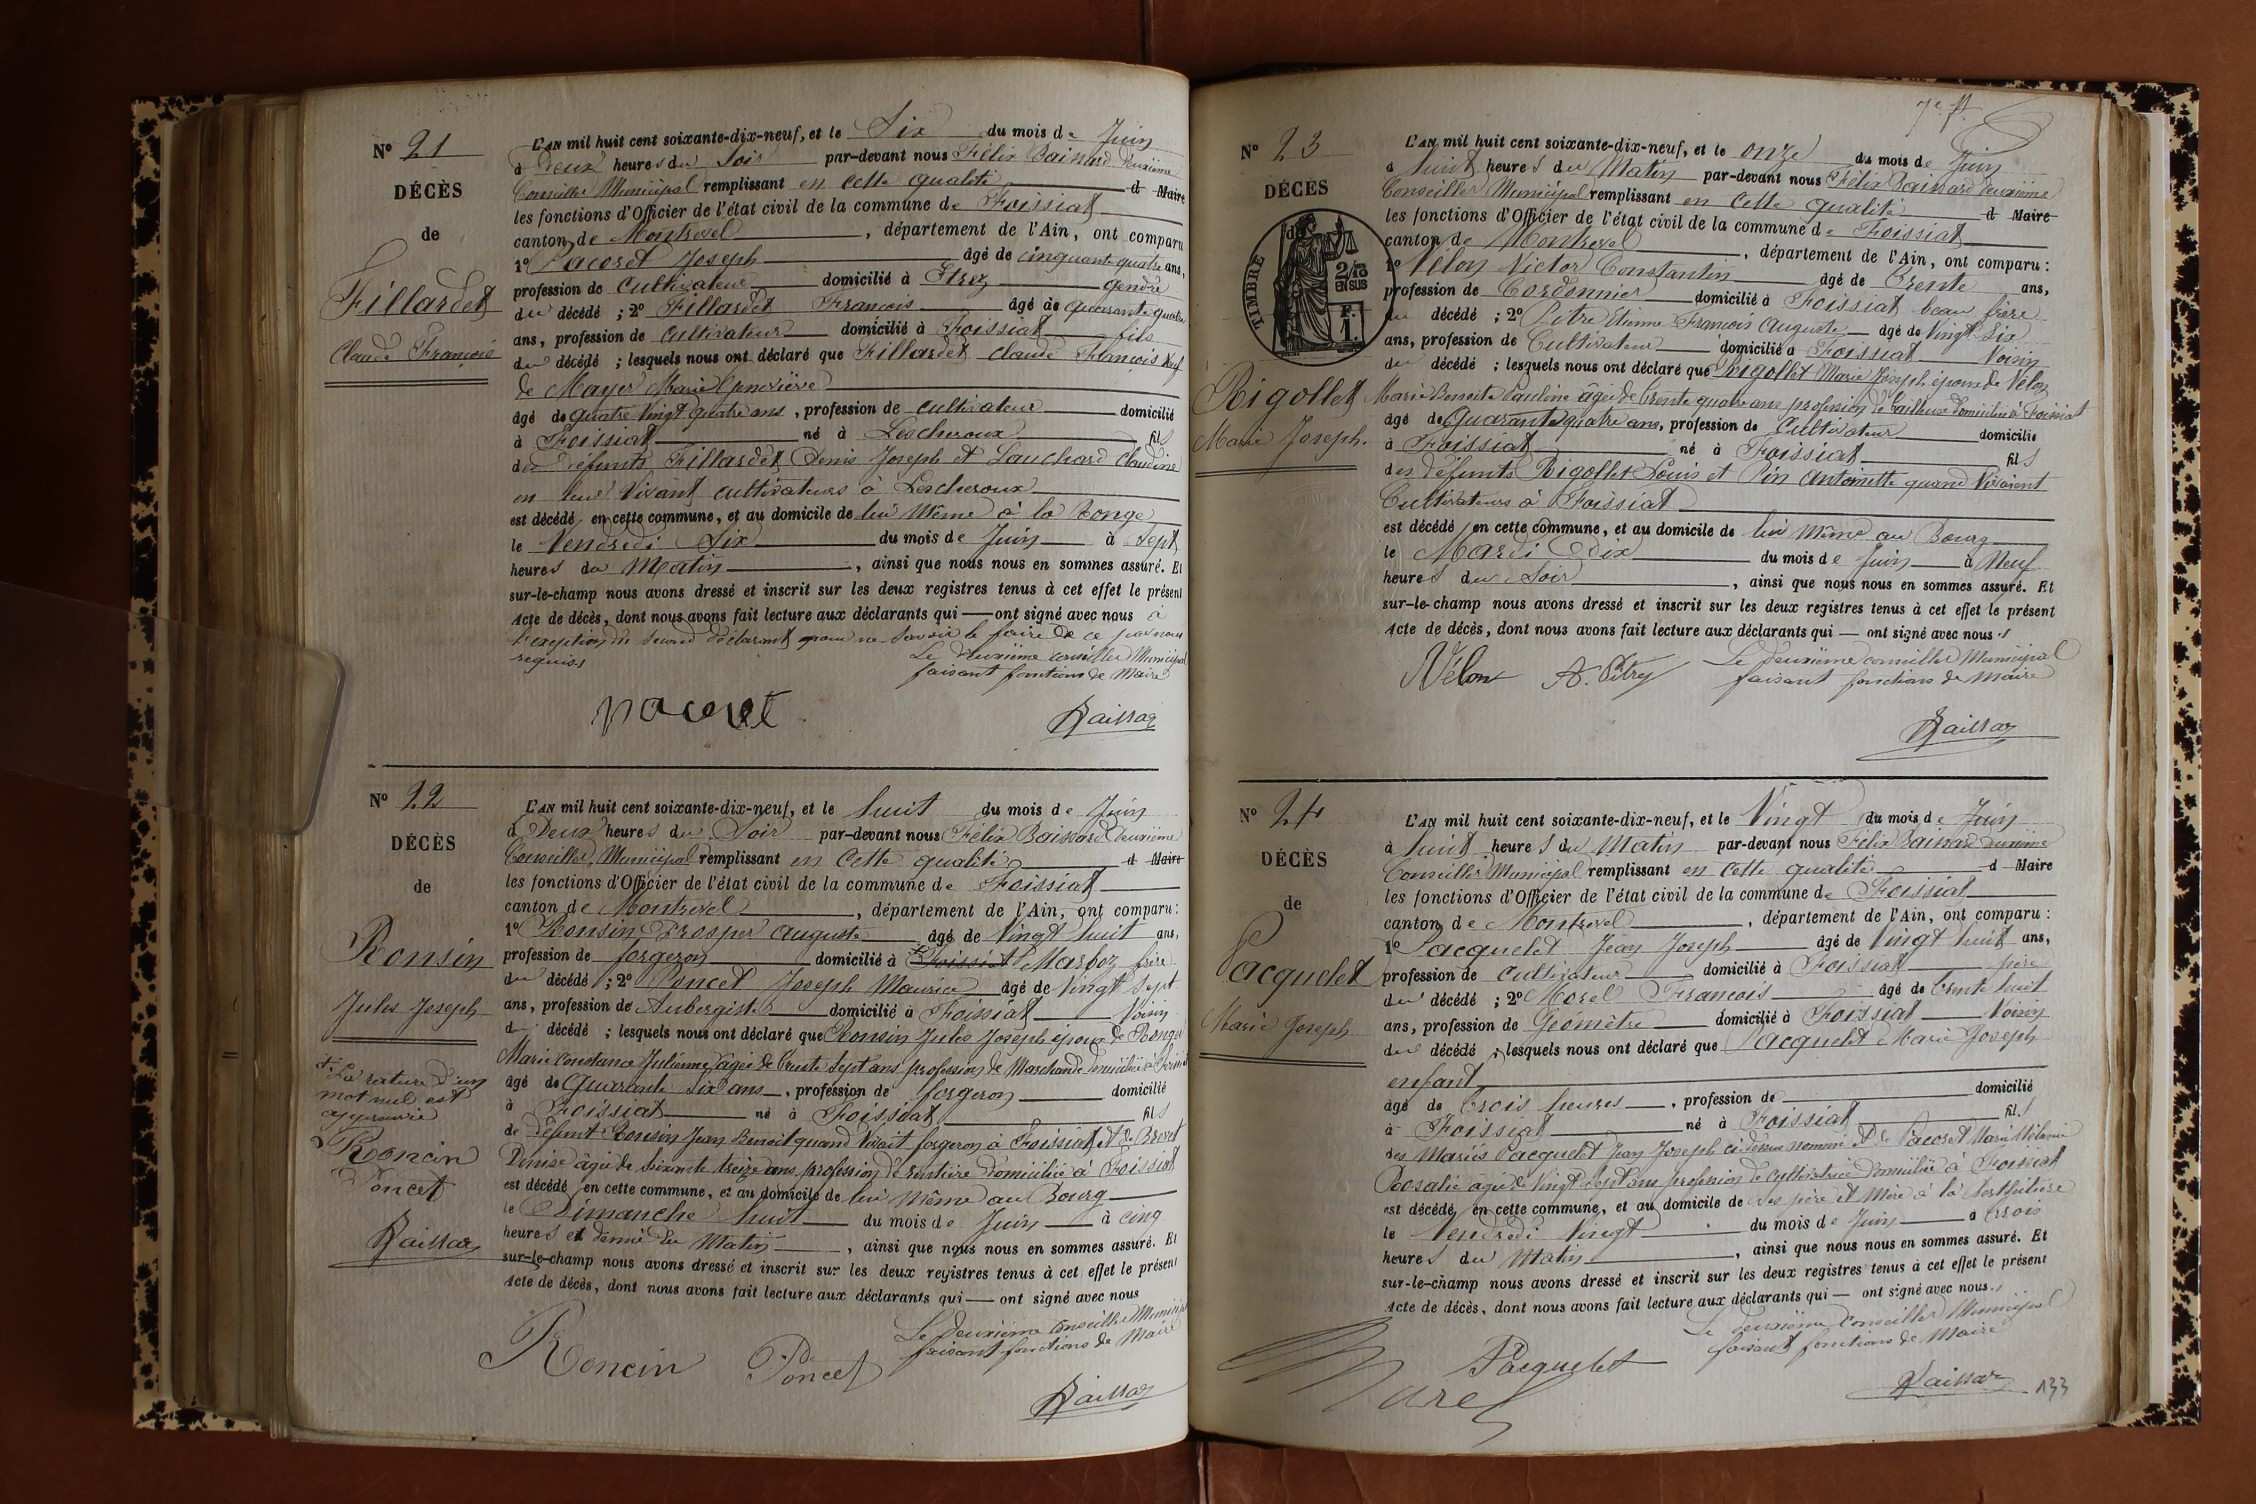 N° 21
DÉCÈS
de
Fillardet
Claude François
L'AN mil huit cent soixante-dix-neuf, et le Six du mois de Juin
à Deux heures du Soir par-devant nous Félix Baissard deuxième
Conseiller Municipal remplissant en cette qualité d Maire
les fonctions d'Officier de l'état civil de la commune de Foissiat
canton de Montrevel, département de l'Ain, ont comparu
1° Pacoret Joseph âgé de cinquante quatre ans,
profession de cultivateur domicilié à Etrez gendre
du décédé ; 2° Fillardet François âgé de quarante quatre
ans, profession de cultivateur domicilié à Foissiat fils
du décédé ; lesquels nous ont déclaré que Fillardet Claude François Veuf
de Mayer Marie Genevière
âgé de quatre Vingt quatre ans, profession de cultivateur domicilié
à Foissiat né à Lescheroux fils
des défunts Fillardet Denis Joseph et Lauchard Claudine
en leur Vivant cultivateurs à Lescheroux
est décédé en cette commune, et au domicile de lui Même à la Ronge
le Vendredi Six du mois de Juin à Sept
heures du Matin, ainsi que nous nous en sommes assuré. Et
sur-le-champ nous avons dressé et inscrit sur les deux registres tenus à cet effet le présent
Acte de décès, dont nous avons fait lecture aux déclarants qui ont signé avec nous à
l'exception du Second déclarant pour ne Savoir le faire de ce par nous
requis
Le deuxième conseiller Municipal
faisant fonctions de Maire
pacoret
Baissar
N° 22
DÉCÈS
de
Ronsin
Jules Joseph
+ La rature d'un
mot nul est
approuvée
Roncin
Poncet
Baissar
L'AN mil huit cent soixante-dix-neuf, et le huit du mois de Juin
à Deux heures du Soir par-devant nous Félix Baissard deuxième
Conseiller Municipal remplissant en cette qualité d Maire
les fonctions d'Officier de l'état civil de la commune de Foissiat
canton de Montrevel, département de l'Ain, ont comparu :
1° Ronsin Prosper Auguste âgé de Vingt huit ans,
profession de forgeron domicilié à + Foissiat Marboz frère
du décédé ; 2° Poncet Joseph Maurice âgé de Vingt Sept
ans, profession de Aubergiste domicilié à Foissiat Voisin
d décédé ; lesquels nous ont déclaré que Ronsin Jules Joseph époux de Ronger
Marie Constance Julienne âgée de trente Sept ans profession de Marchande domiciliée à Foissiat
âgé de Quarante Six ans, profession de forgeron domicilié
à Foissiat né à Foissiat fils
de défunt Ronsin Jean Benoit quand Vivait forgeron à Foissiat et de Brevet
Denise âgée de soixante treize ans profession de rentière domiciliée à Foissiat
est décédé en cette commune, et au domicile de lui Même au Bourg
le Dimanche huit du mois de Juin à cinq
heures et demie du Matin, ainsi que nous nous en sommes assuré. Et
sur-le-champ nous avons dressé et inscrit sur les deux registres tenus à cet effet le présent
Acte de décès, dont nous avons fait lecture aux déclarants qui ont signé avec nous
Le Deuxième Conseiller Municipal
faisant fonctions de Maire
Roncin
Poncet
Baissar
7e ft
N° 23
DÉCÈS
de
TIMBRE
2/10
EN SUS
F.
1.
Rigollet
Marie Joseph.
L'AN mil huit cent soixante-dix-neuf, et le onze du mois de Juin
à huit heures du Matin par-devant nous Félix Baissard deuxième
Conseiller Municipal remplissant en cette qualité d Maire
les fonctions d'Officier de l'état civil de la commune de Foissiat
canton de Montrevel, département de l'Ain, ont comparu :
1° Vélon Victor Constantin âgé de Trente ans,
profession de Cordonnier domicilié à Foissiat beau frère
du décédé ; 2° Pitre Etienne François Auguste âgé de Vingt Six
ans, profession de Cultivateur domicilié à Foissiat Voisin
du décédé ; lesquels nous ont déclaré que Rigollet Marie Joseph époux de Vélon
Marie Benoite Pauline âgée de trente quatre ans profession de tailleuse domiciliée à Foissiat
âgé de Quarante quatre ans, profession de Cultivateur domicilié
à Foissiat né à Foissiat fils
des défunts Rigollet Louis et Pin Antoinette quand Vivaient
Cultivateurs à Foissiat
est décédé en cette commune, et au domicile de lui Même au Bourg
le Mardi Dix du mois de Juin à Neuf
heures du Soir, ainsi que nous nous en sommes assuré. Et
sur-le-champ nous avons dressé et inscrit sur les deux registres tenus à cet effet le présent
Acte de décès, dont nous avons fait lecture aux déclarants qui ont signé avec nous
Le deuxième conseiller Municipal
faisant fonctions de Maire
Vélon A. Pitre
Baissar
N° 24
DÉCÈS
de
Pacquelet
Marie Joseph
L'AN mil huit cent soixante-dix-neuf, et le Vingt du mois de Juin
à huit heures du Matin par-devant nous Félix Baissard deuxième
Conseiller Municipal remplissant en cette qualité d Maire
les fonctions d'Officier de l'état civil de la commune de Foissiat
canton de Montrevel, département de l'Ain, ont comparu :
1° Pacquelet Jean Joseph âgé de Vingt huit ans,
profession de cultivateur domicilié à Foissiat père
du décédé ; 2° Morel François âgé de trente huit
ans, profession de Géomètre domicilié à Foissiat Voisin
du décédé ; lesquels nous ont déclaré que Pacquelet Marie Joseph
enfant
âgé de trois heures, profession de domicilié
à Foissiat né à Foissiat fils
des Mariés Pacquelet Jean Joseph ci dessus nommé et de Pacoret Marie Mélanie
Rosalie âgée de Vingt Sept ans profession de cultivatrice domiciliée à Foissiat
est décédé en cette commune, et au domicile de ses père et Mère à la
le Vendredi Vingt du mois de Juin à trois
heures du Matin, ainsi que nous nous en sommes assuré. Et
sur-le-champ nous avons dressé et inscrit sur les deux registres tenus à cet effet le présent
Acte de décès, dont nous avons fait lecture aux déclarants qui ont signé avec nous
Le deuxième Conseiller Municipal
faisant fonctions de Maire
Pacquelet
Morel
Baissar
133